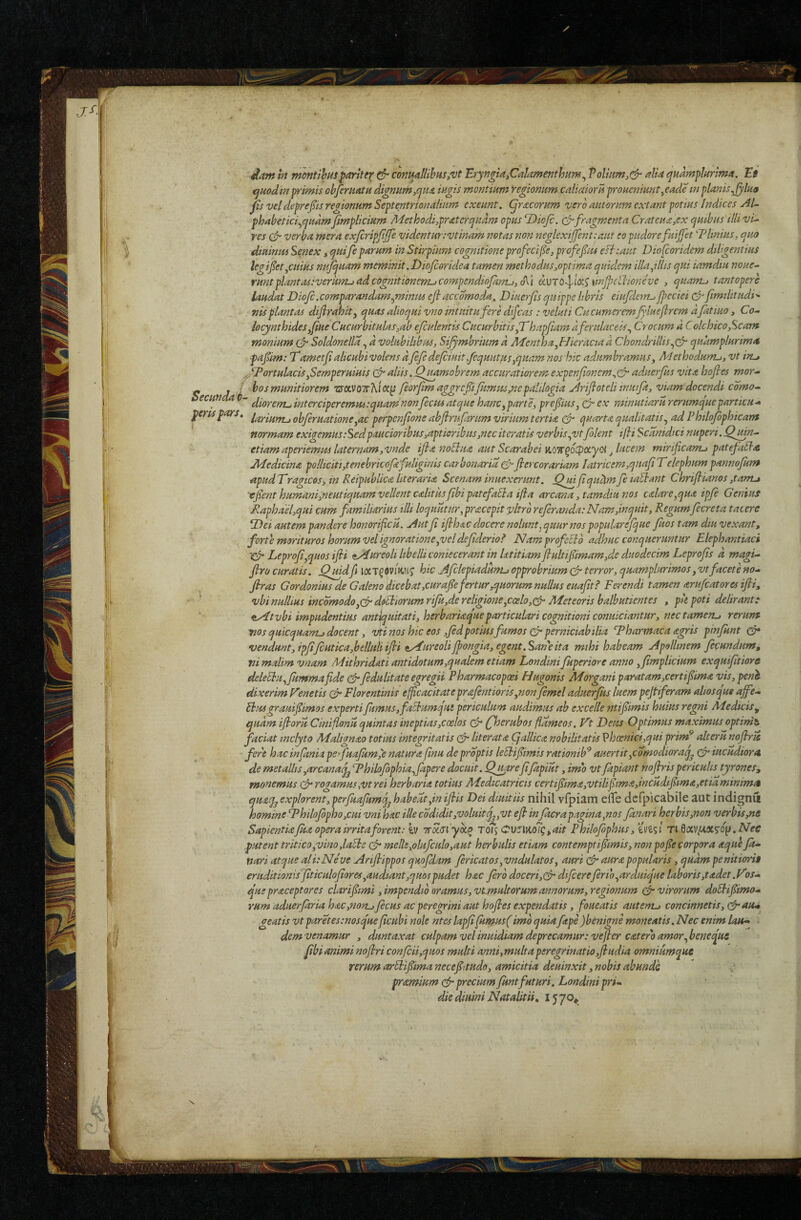 dam in montibus pariter & conuallibus,vt Eryngia,Calamenthum, Polium,& alia quàmplurima. Et
quod in primis obseruatu dignum,quæ iugis montium regionum calidiorũ proueniunt,eadē in planis,syluo
sis vel depreßis regionum Septentrionalium exeunt. Græcorum verò autorum extant potius Indices Al-
phabetici,quàm simplicium Methodi,præterquàm opus Diosc. & fragmenta Crateuæ,ex quibus illi vi-
res & verba mera exscripsisse videntur:vtinam notas non neglexissent:aut eo pudore fuisset Plinius, quo
diuinus Senex , qui se parum in Stirpium cognitione profeciße, profeßus est:aut Dioscoridem diligentius
legißet,cuius nusquam meminit. Dioscoridea tamen methodus,optima quidem illa,illis qui iamdiu noue-
runt plantas:verum ad cognitionem compendiosam, δι αυτο-ψιας inspectionéve , quam tantopere
laudat Diosc.comparandam,minus est accōmoda. Diuersis quippe libris eiusdem speciei & similitudi-
nis plantas distrahit, quas alioqui vno intuitu fere discas : velati Cucumerem syluestrem à satiuo , Co-
locynthides,siue Cucurbitulas,ab esculentis Cucurbitis,Thapsiam à ferulaceis, Crocum à Colchico,Scam
monium & Soldonellã , à volubilibus, Sisymbrium à Mentha,Hieracia à Chondrillis,& quàmplurima
paßim: Tametsi alicubi volens à sese desciuit,sequutus,quàm nos hic adumbramus, Methodum, vt in
Portulacis,Semperuiuis & aliis. Quamobrem accuratiorem expensionem,& aduersus vitæ hostes mor-
bos munitiorem πανοπλιαν seorsim aggreßi sumus,ne palilogia Aristoteli inuisa, viam docendi cōmo-
Secunda o-
peris pars.
diorem interciperemus:quam non secus atque hanc, partē, preßius, & ex minutiarũ rerumque particu-
larium obseruatione,ac perpensione abstrusarum virium tertiæ & quartæ qualitatis, ad Philosophicam
normam exigemus:Sed paucioribus,aptioribus,nec iteratis verbis,vt solent isti Scãnidici nuperi. Quin-
etiam aperiemus laternam,vnde ista noctuæ aut Scarabei κοπρόφαγοι , lucem mirificam patefactæ
Medicinæ polliciti,tenebricosæ fuliginis carbonariã & stercorariam Iatricem,quasi Telephum pannosum
apud Tragicos, in Reipublicæ literariæ Scenam inuexerunt. Qui si quàm se iactant Christianos ,tam
eßent humani,neutiquam vellent cælitus sibi patefacta ista arcana , tamdiu nos celare,quæ ipse Genius
Raphaël,qui cum familiarius illi loquũtur,præcepit vltrò referanda: Nam,inquit, Regum secreta tacere
Dei autem pandere honorificũ. Aut si isthæc docere nolunt,quur nos popularesque suos tam diu vexant,
forte morituros horum vel ignoratione,vel desiderio? Nam profectò adhuc conqueruntur Elephantiaci
& Leprosi,quos isti Aureoli libelli coniecerant in lætitiam stultißimam,de duodecim Leprosis à magi-
stro curatis. Quid si ιατρονικης hic Asclepiadũm opprobrium & terror, quamplurimos , vt facete no-
stras Gordonius de Galeno dicebat,curaße fertur,quorum nullus euasit? Ferendi tamen ærusca­tores isti,
vbi nullius incōmodo,& doctiorum risu,de religione,cœlo,& Meteoris balbutientes , piè poti delirant:
Atvbi impudentius antiquitati, herbariæque particulari cognitioni conuiciantur, nec tamen rerum
nos quicquam docent , vti nos hic eos ,sed potius fumos & perniciabilia Pharmaca ægris pinsunt &
vendunt, ipsi scutica,belluli isti Aureoli spongia, egent. Sanè ita mihi habeam Apollinem secundum,
vi malim vnam Mithridati antidotum,qualem etiam Londini superiore anno ,simplicium exquisitiore
delectu,summa fide & sedulitate egregii Pharmacopœi Hugonis Morgani paratam,certißimæ vis, penè
dixerim Venetis & Florentinis efficacitate præsentioris,non semel aduersus luem pestiferam aliosque affe-
ctus grauißimos experti sumus,factumque periculum audimus ab excellentißimis huius regni Medicis,
quàm istorũ Ciniflonũ quintas ineptias,cœlos & Cherubos flãmeos. Vt Deus Optimus maximus optimis
faciat inclyto Malignæo totius integritatis & literatæ Gallicæ nobilitatis Phœnici,qui primꝰ alterũ nostrũ
ferè hac insania persuasum,e natura sinu de prōptis lectißimis rationibꝰ auertit,cōmodioraq, & iucũdiora
de metallis,arcanaq, Philosophia,sapere docuit. Quare si sapiūt , imò vt sapiant nostris periculis tyrones,
monemus & rogamus,vt rei herbariæ totius Medicatricis certißimæ,vtilißimæ,iucũdißimæ,etiã minima
quæq, explorent, persuasumq, habeãt,in istis Dei diuitiis nihil vspiam esse despicabile aut indignũ
homine Philosopho,cui vni hæc ille cōdidit,voluitq,,vt est in sacra pagina,nos sanari herbis,non verbis,ne
Sapientiæ suæ opera irrita forent: ἐν πᾶσι γὰρ τοῖς φυσικοῖς,ait Philosophus, ἔνεστί τι θαυμαστόν. Nec
putent tritico,vino,lacte & melle,olusculo,aut herbulis etiam contemptißimis,non poße corpora æquè sa-
nari atque ali:Néve Aristippos quosdam sericatos,vndulatos, auri & auræ popularis , quàm penitioris
eruditionis siticulosiores,audiant,quos pudet hæc serò doceri,& discere seriò,arduique laboris,tædet.Vos-
que præceptores clarißimi , impendiò oramus, vt multorum annorum, regionum & virorum doctißimo-
rum aduersaria hæc,non secus ac peregrini aut hostes expendatis , foueatis autem concinnetis, & au-
geatis vt parētes:nosque sicubi nolentes lapsi sumus( imò quia sæpè )benignè moneatis. Nec enim lau-
dem venamur , duntaxat culpam vel inuidiam deprecamur: vester cæterò amor, beneque
sibi animi nostri conscii,quos multi anni,multa peregrinatio,studia omniũmque
rerum arctißima neceßitudo, amicitia deuinxit , nobis abundè
præmium & precium sunt futuri. Londini pri-
die diuini Natalitii. 1570.